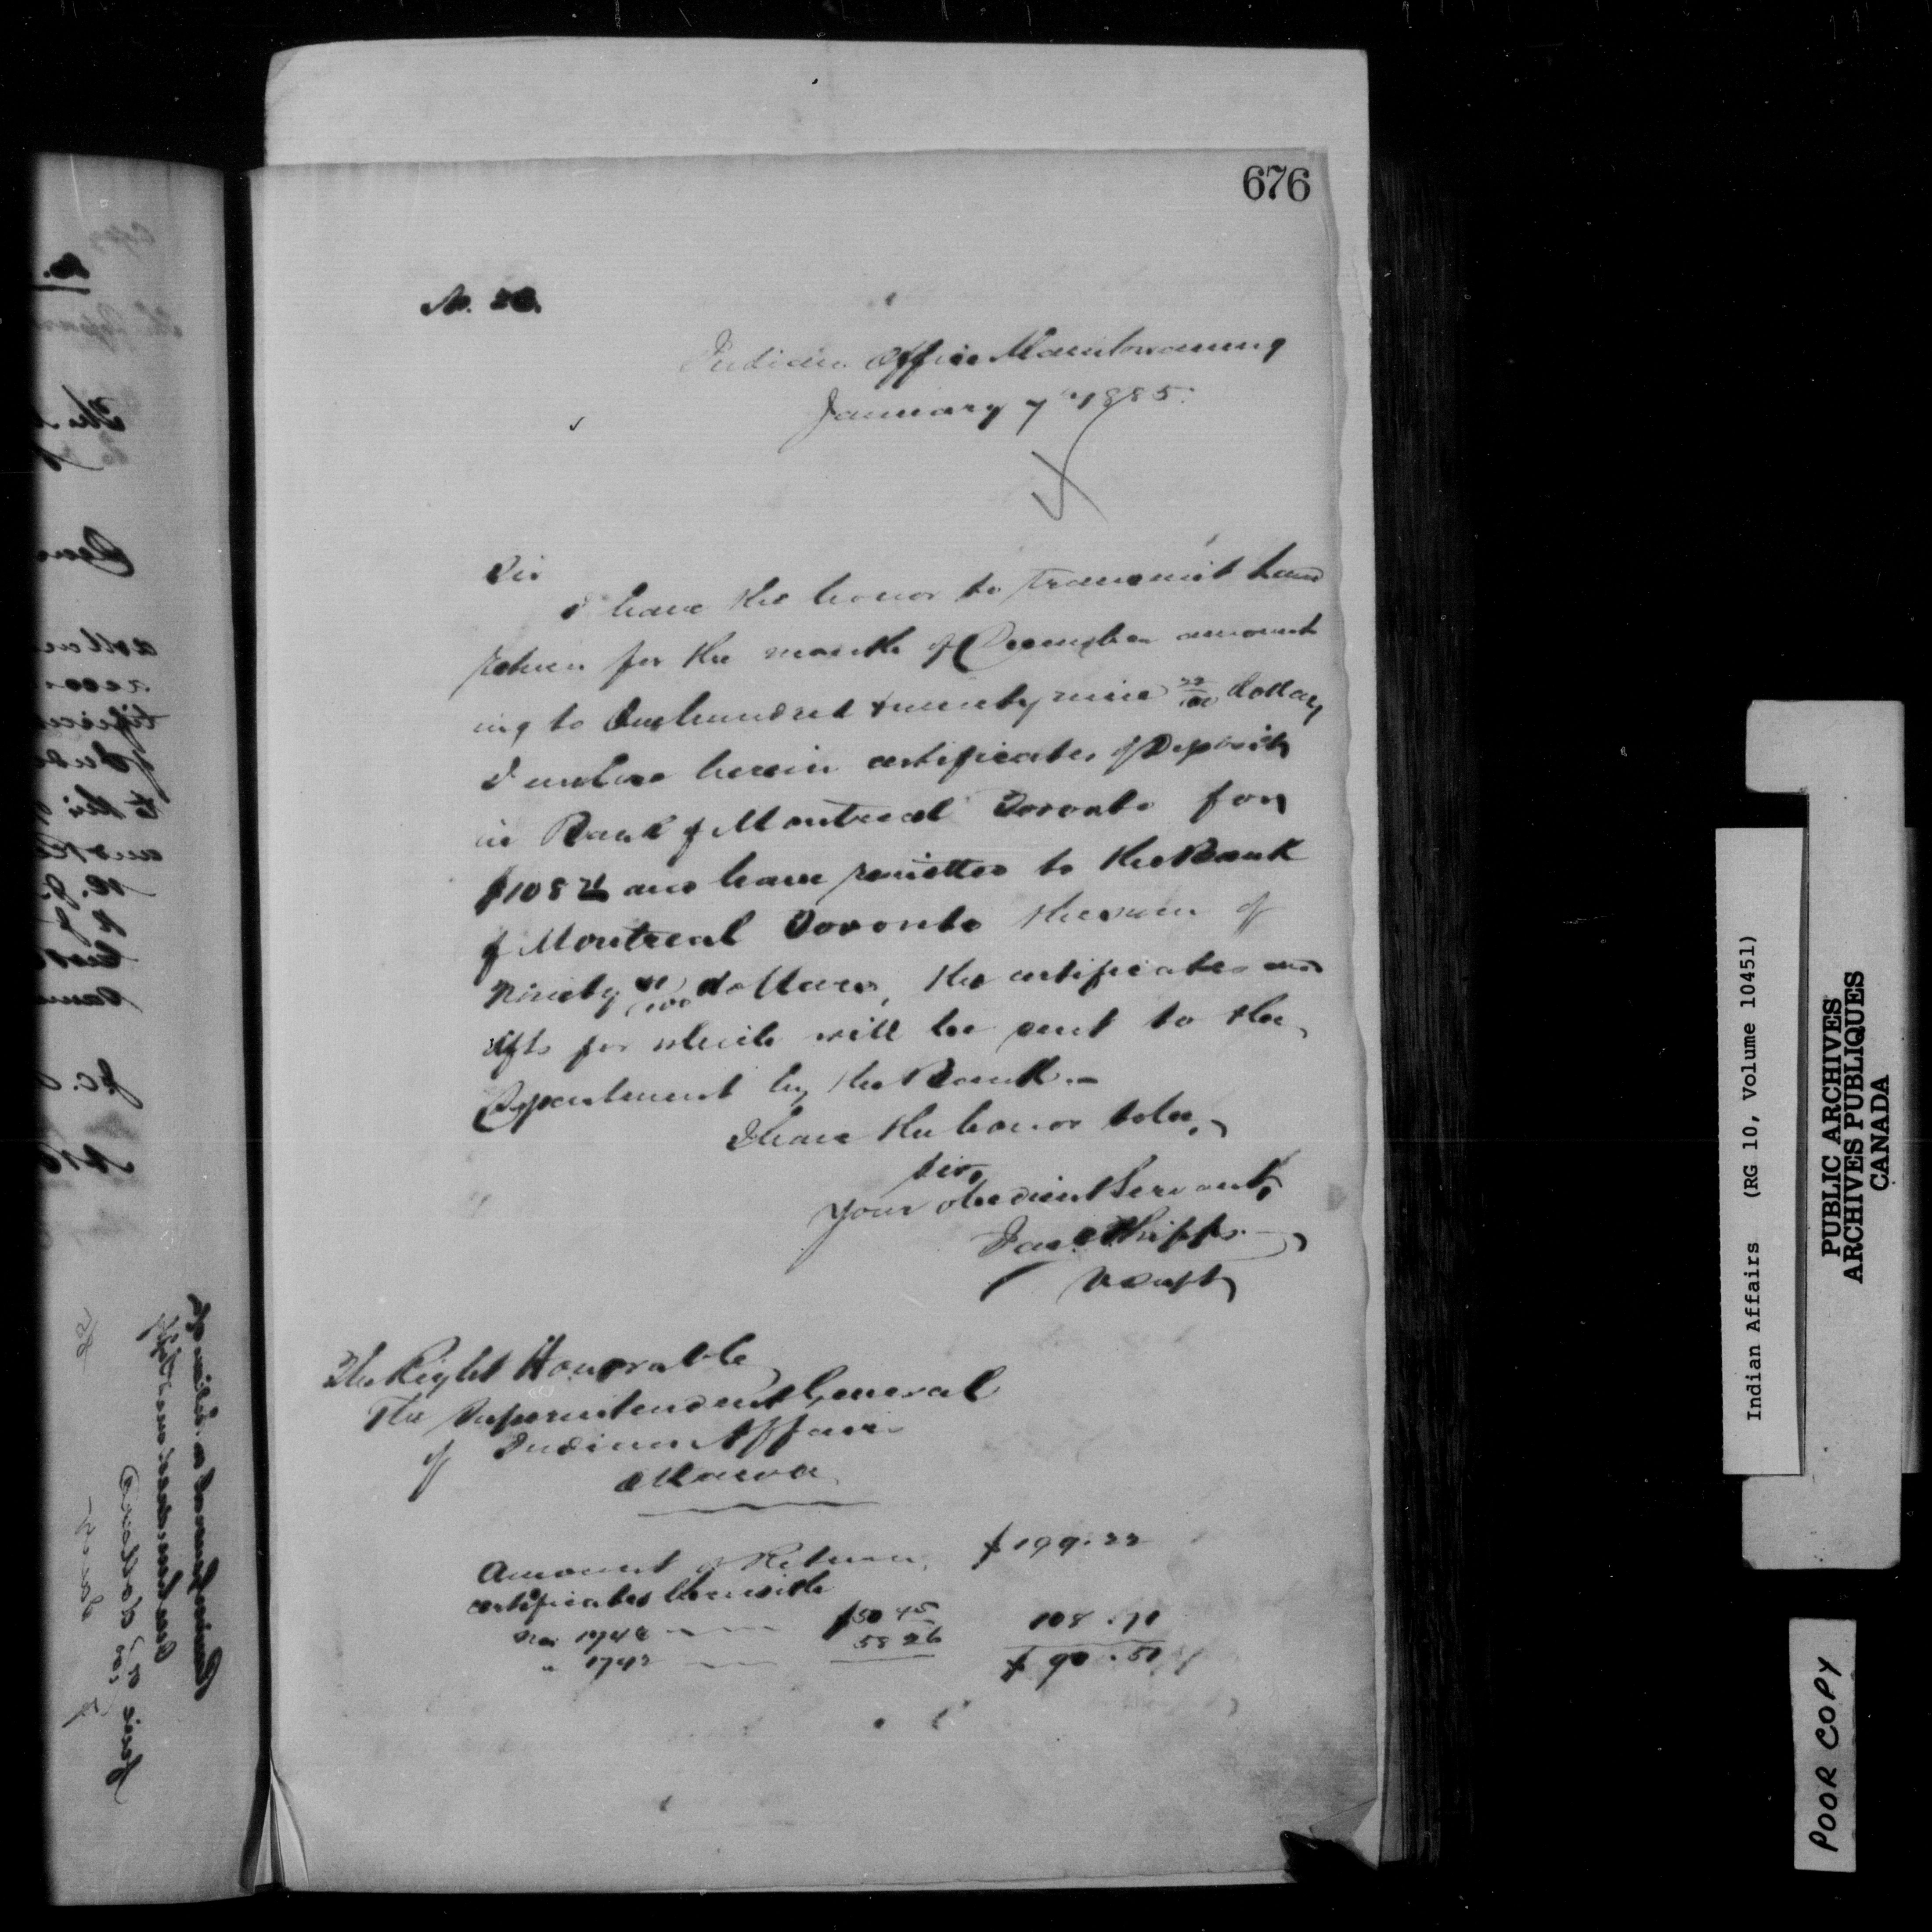 676
No. 20.
Indian Office Manitowaning
January 7th 1885.
Sir
I have the honor to transmit Land
return for the month of December amount
ing to One hundred & ninety nine 22/100 dollars
I enclose herein certificates of Deposit
in Bank of Montreal Toronto for
$108 71 and have remitted to the Bank
of Montreal Toronto the sum of
Ninety 51/100 dollars, the certificates and
dfts for which will be sent to the
Department by the Bank.-
I have the honor to be,
Sir,
Your obedient Servant,
Jas C Phipps
V Supt
The Right Honorable
The Superintendent General
of Indian Affairs
Ottawa
Amount of Return $199.22
certificates herewith
No. 1748 $50 45
" 1742 58 26 108.71
$90.51
Indian Affairs (RG 10, Volume 10451)
PUBLIC ARCHIVES
ARCHIVES PUBLIQUES
CANADA
POOR COPY